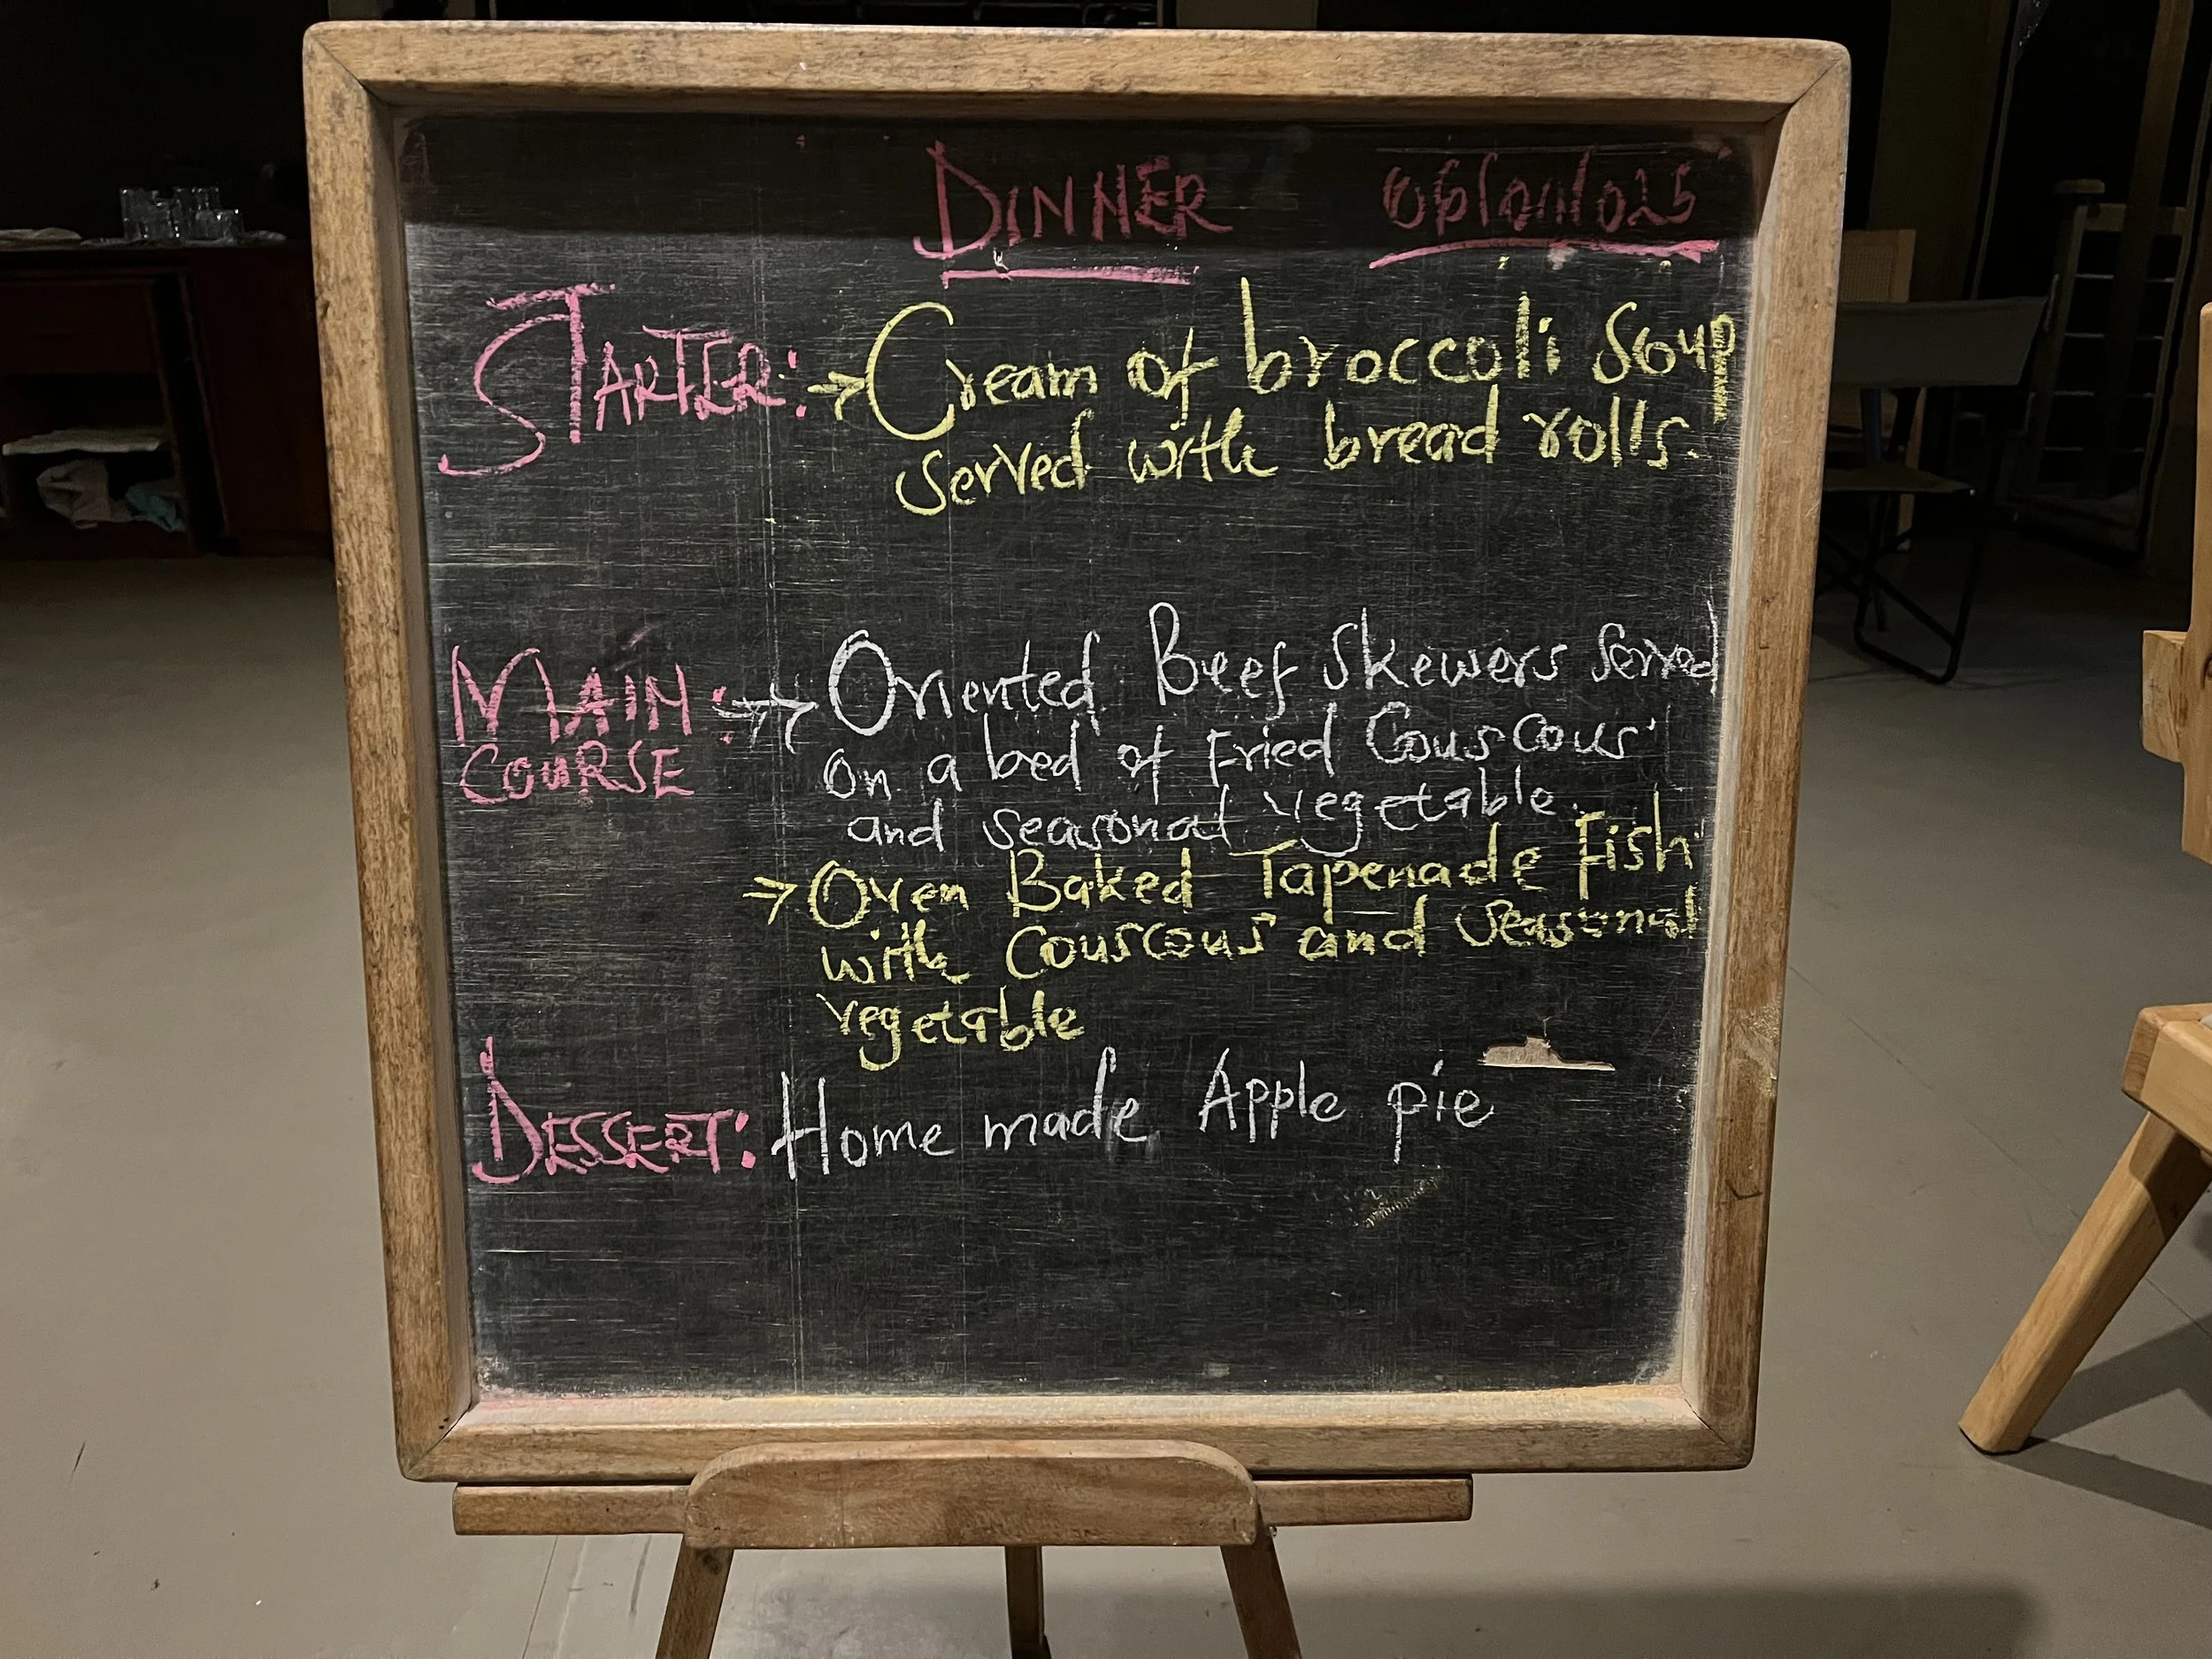 DINNER
STARTER: → Cream of broccoli Soup
served with bread rolls.
MAIN : → Oriented Beef Skewers Served
COURSE
on a bed of Fried Couscous
and seasonal vegetable.
→ Oven Baked Tapenade Fish
with Couscous and Seasonal
vegetable
DESSERT: Home made Apple pie